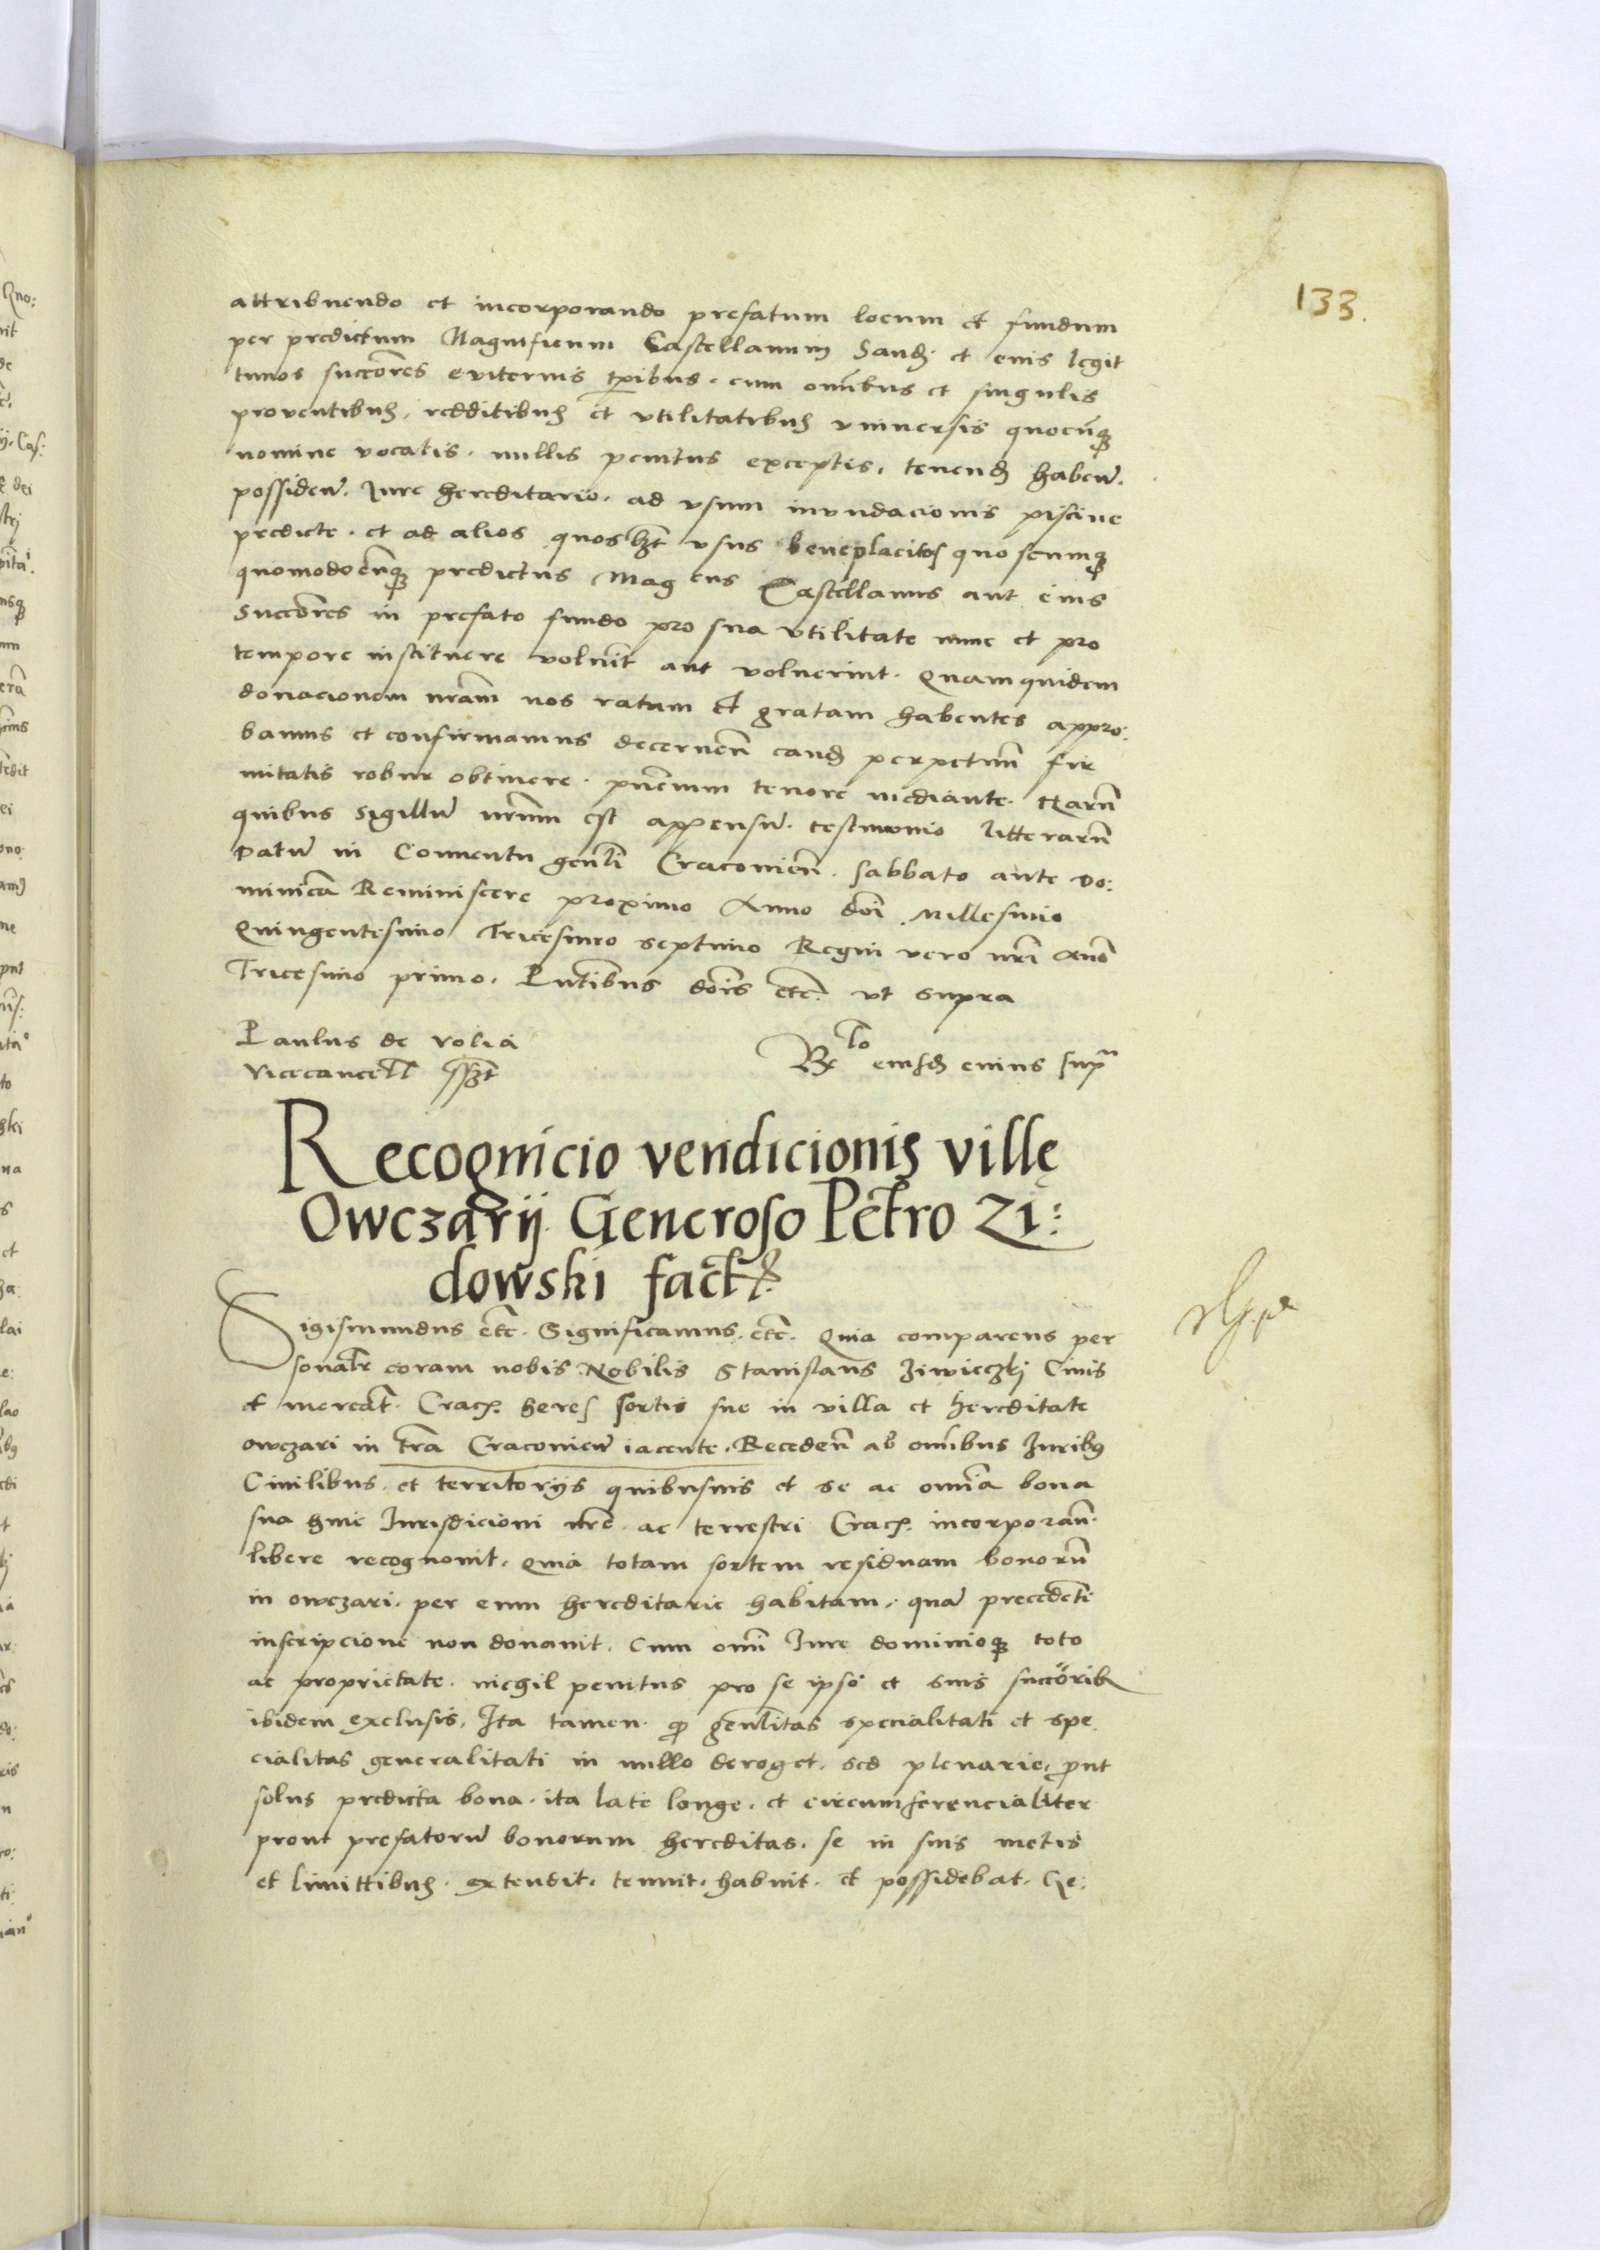 133.
attribuendo et incorporando prefatum locum et fundum
per predictum Magnificum Castellanum Sandꝫ. et eius legit
timos succōres eviternis tp̄ibus. cum omībus et singulis
proventibꝫ, redditibꝫ et utilitatibꝫ universis quocūqꝫ
nomine vocatis. nullis penitus exceptis, tenendꝫ haben̄.
possiden̄. Jure hereditario. ad usum inundacionis piscine
predicte. et ad alios quoslꝫt usus beneplacitos quoscumqꝫ
quomodocūqꝫ predictus Mag cus Castellanus aut eius
Succōres in prefato fundo pro sua utilitate nunc et pro
tempore instituere voluīt aut voluerint. Quam quidem
donacionem nr̄am nos ratam et gratam habentes appro:
bamus et confirmamus decernen̄ eandꝫ perpetuū fir
mitatis robur obtinere. pn̄cium tenore mediante. Harū
quibus Sigillū nr̄um est appensū. testimonio litterarū
Datū in Conventu gen̄li Cracovien̄. Sabbato ante Do:
minicā Reminiscere proximo Anno dn̄i Millesimo
Quingentesimo Tricesimo septimo Regni vero nr̄i Anō
Tricesimo primo. Pn̄tibus dn̄is etc̄. ut supra
Paulus de Volia
Vicecancell̄ sszt
Rlo eiusdꝫ cuius supra
Recognicio vendicionis villę
Owczarij Generoso Petro Zi:
dowski fact.
Sigismundus etc̄. Significamus. etc̄. Quia comparens per
sonalr̄ coram nobis Nobilis Stanislaus Ziwieczki Civis
et mercāt. Crac̄. heres sortis sue in villa et hereditate
owczari in tr̄a Cracovien̄ iacente. Receden̄ ab omībus Juribꝫ
Civilibus. et territorijs quibusvis et se ac omīa bona
sua huic Jurisdicioni nr̄e. ac terrestri Crac̄. incorporan̄.
libere recognovit. Quia totam sortem residuam bonorū
in owczari. per eum hereditarie habitam. quā precedēti
inscripcione non donavit. Cum omī Jure dominioqꝫ toto
ac proprietate. nichil penitus pro se ipso et suis succōribꝫ
ibidem exclusis. Ita tamen ꝙ gen̄litas specialitati et spe
cialitas generalitati in nullo deroget. sed plenarie, ꝓut
solus predicta bona. ita late longe. et circumferencialiter
prout prefatorū bonorum hereditas. se in suis metis
et limittibꝫ. extendit. tenuit. habuit. et possidebat. Ge: